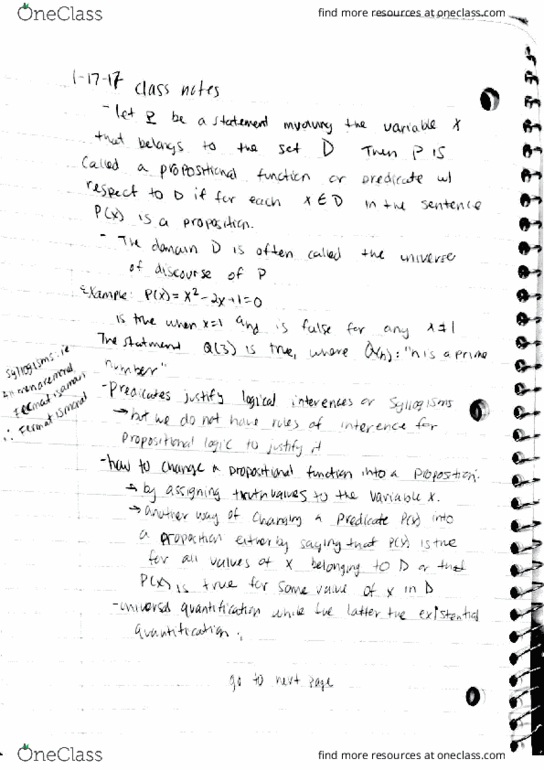 OneClass
find more resources at oneclass.com
1-17-17 class notes
- let P be a statement involving the variable x
that belongs to the set D Then P is
called a propositional function or predicate w/
respect to D if for each x ∈ D in the sentence
P(x) is a proposition.
- The domain D is often called the universe
of discourse of P
Example: P(x) = x² - 2x + 1 = 0
is true when x=1 and is false for any x≠1
The statment Q(3) is true, where Q(n): "n is a prime
number"
Syllogisms: ie
All men are moral
Fermat is a man
∴ Fermat is moral
- predicates justify logical interences or syllogisms
→ but we do not have rules of interence for
propositional logic to justify it
- how to change a propositional function into a proposition.
→ by assigning truth values to the variable x.
→ another way of changing a predicate P(x) into
a proposition either by saying that P(x) is true
for all values of x belonging to D or that
P(x) is true for some value of x in D
- universal quantification while the latter the existential
quantification.
go to next page
OneClass
find more resources at oneclass.com